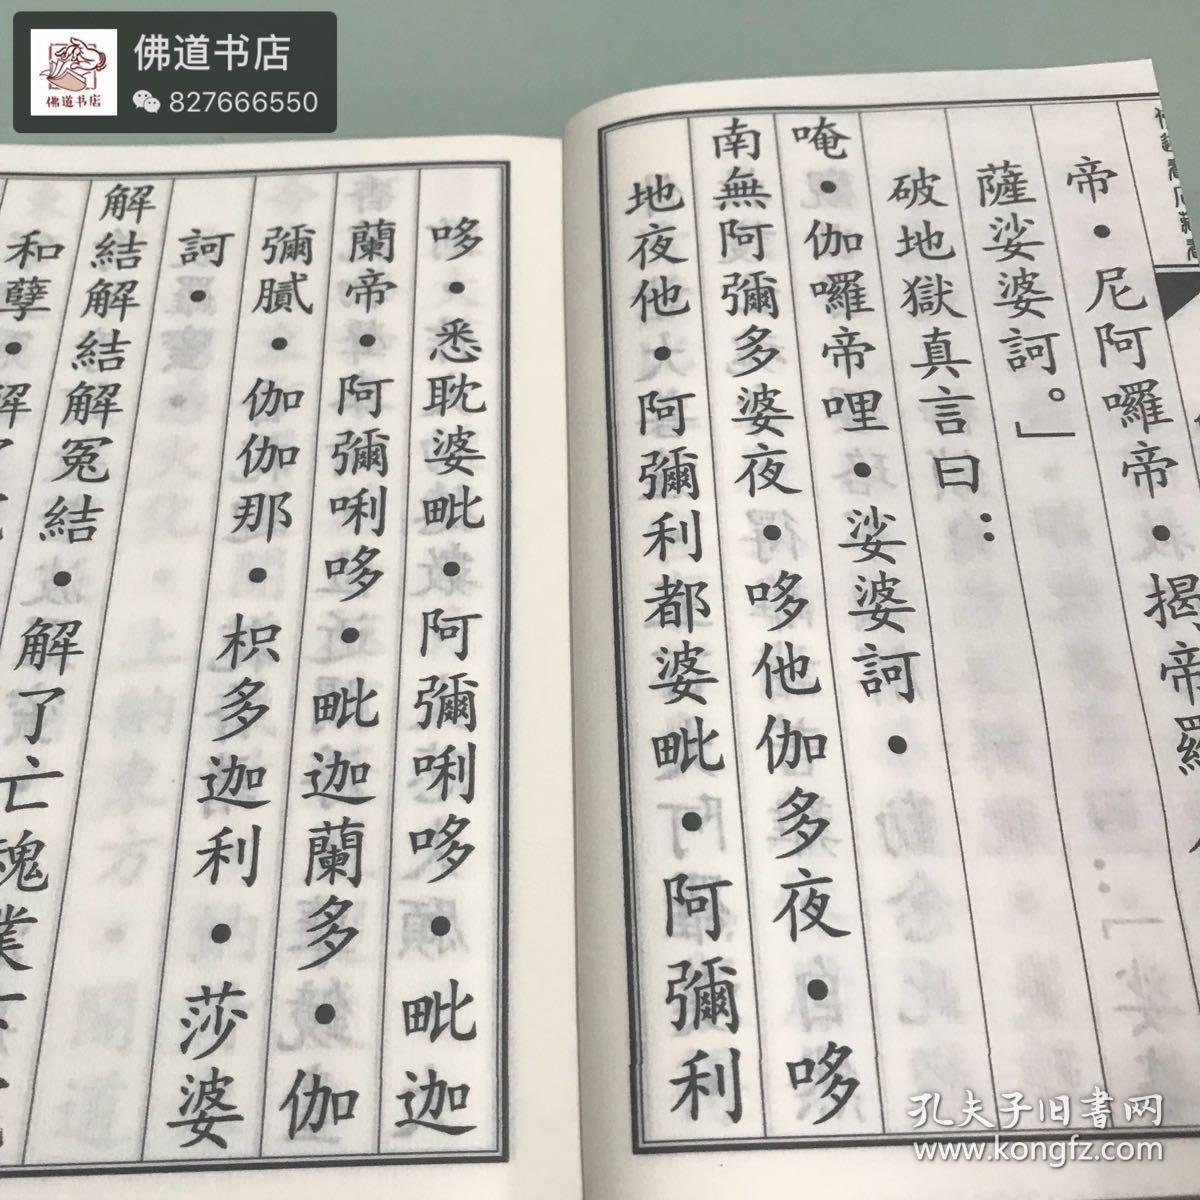 佛道书店
827666550
佛道书店
帝・尼阿囉帝・揭帝羅
薩娑婆訶。」
破地獄真言曰：
唵・伽囉帝哩・娑婆訶・
南無阿彌多婆夜・哆他伽多夜・哆
地夜他・阿彌利都婆毗・阿彌利
哆・悉耽婆毗・阿彌唎哆・毗迦
蘭帝・阿彌唎哆・毗迦蘭多・伽
彌膩・伽伽那・枳多迦利・莎婆
訶・
解結解結解冤結・解了亡魂業
和孽・解
孔夫子旧書网
www.kongfz.com